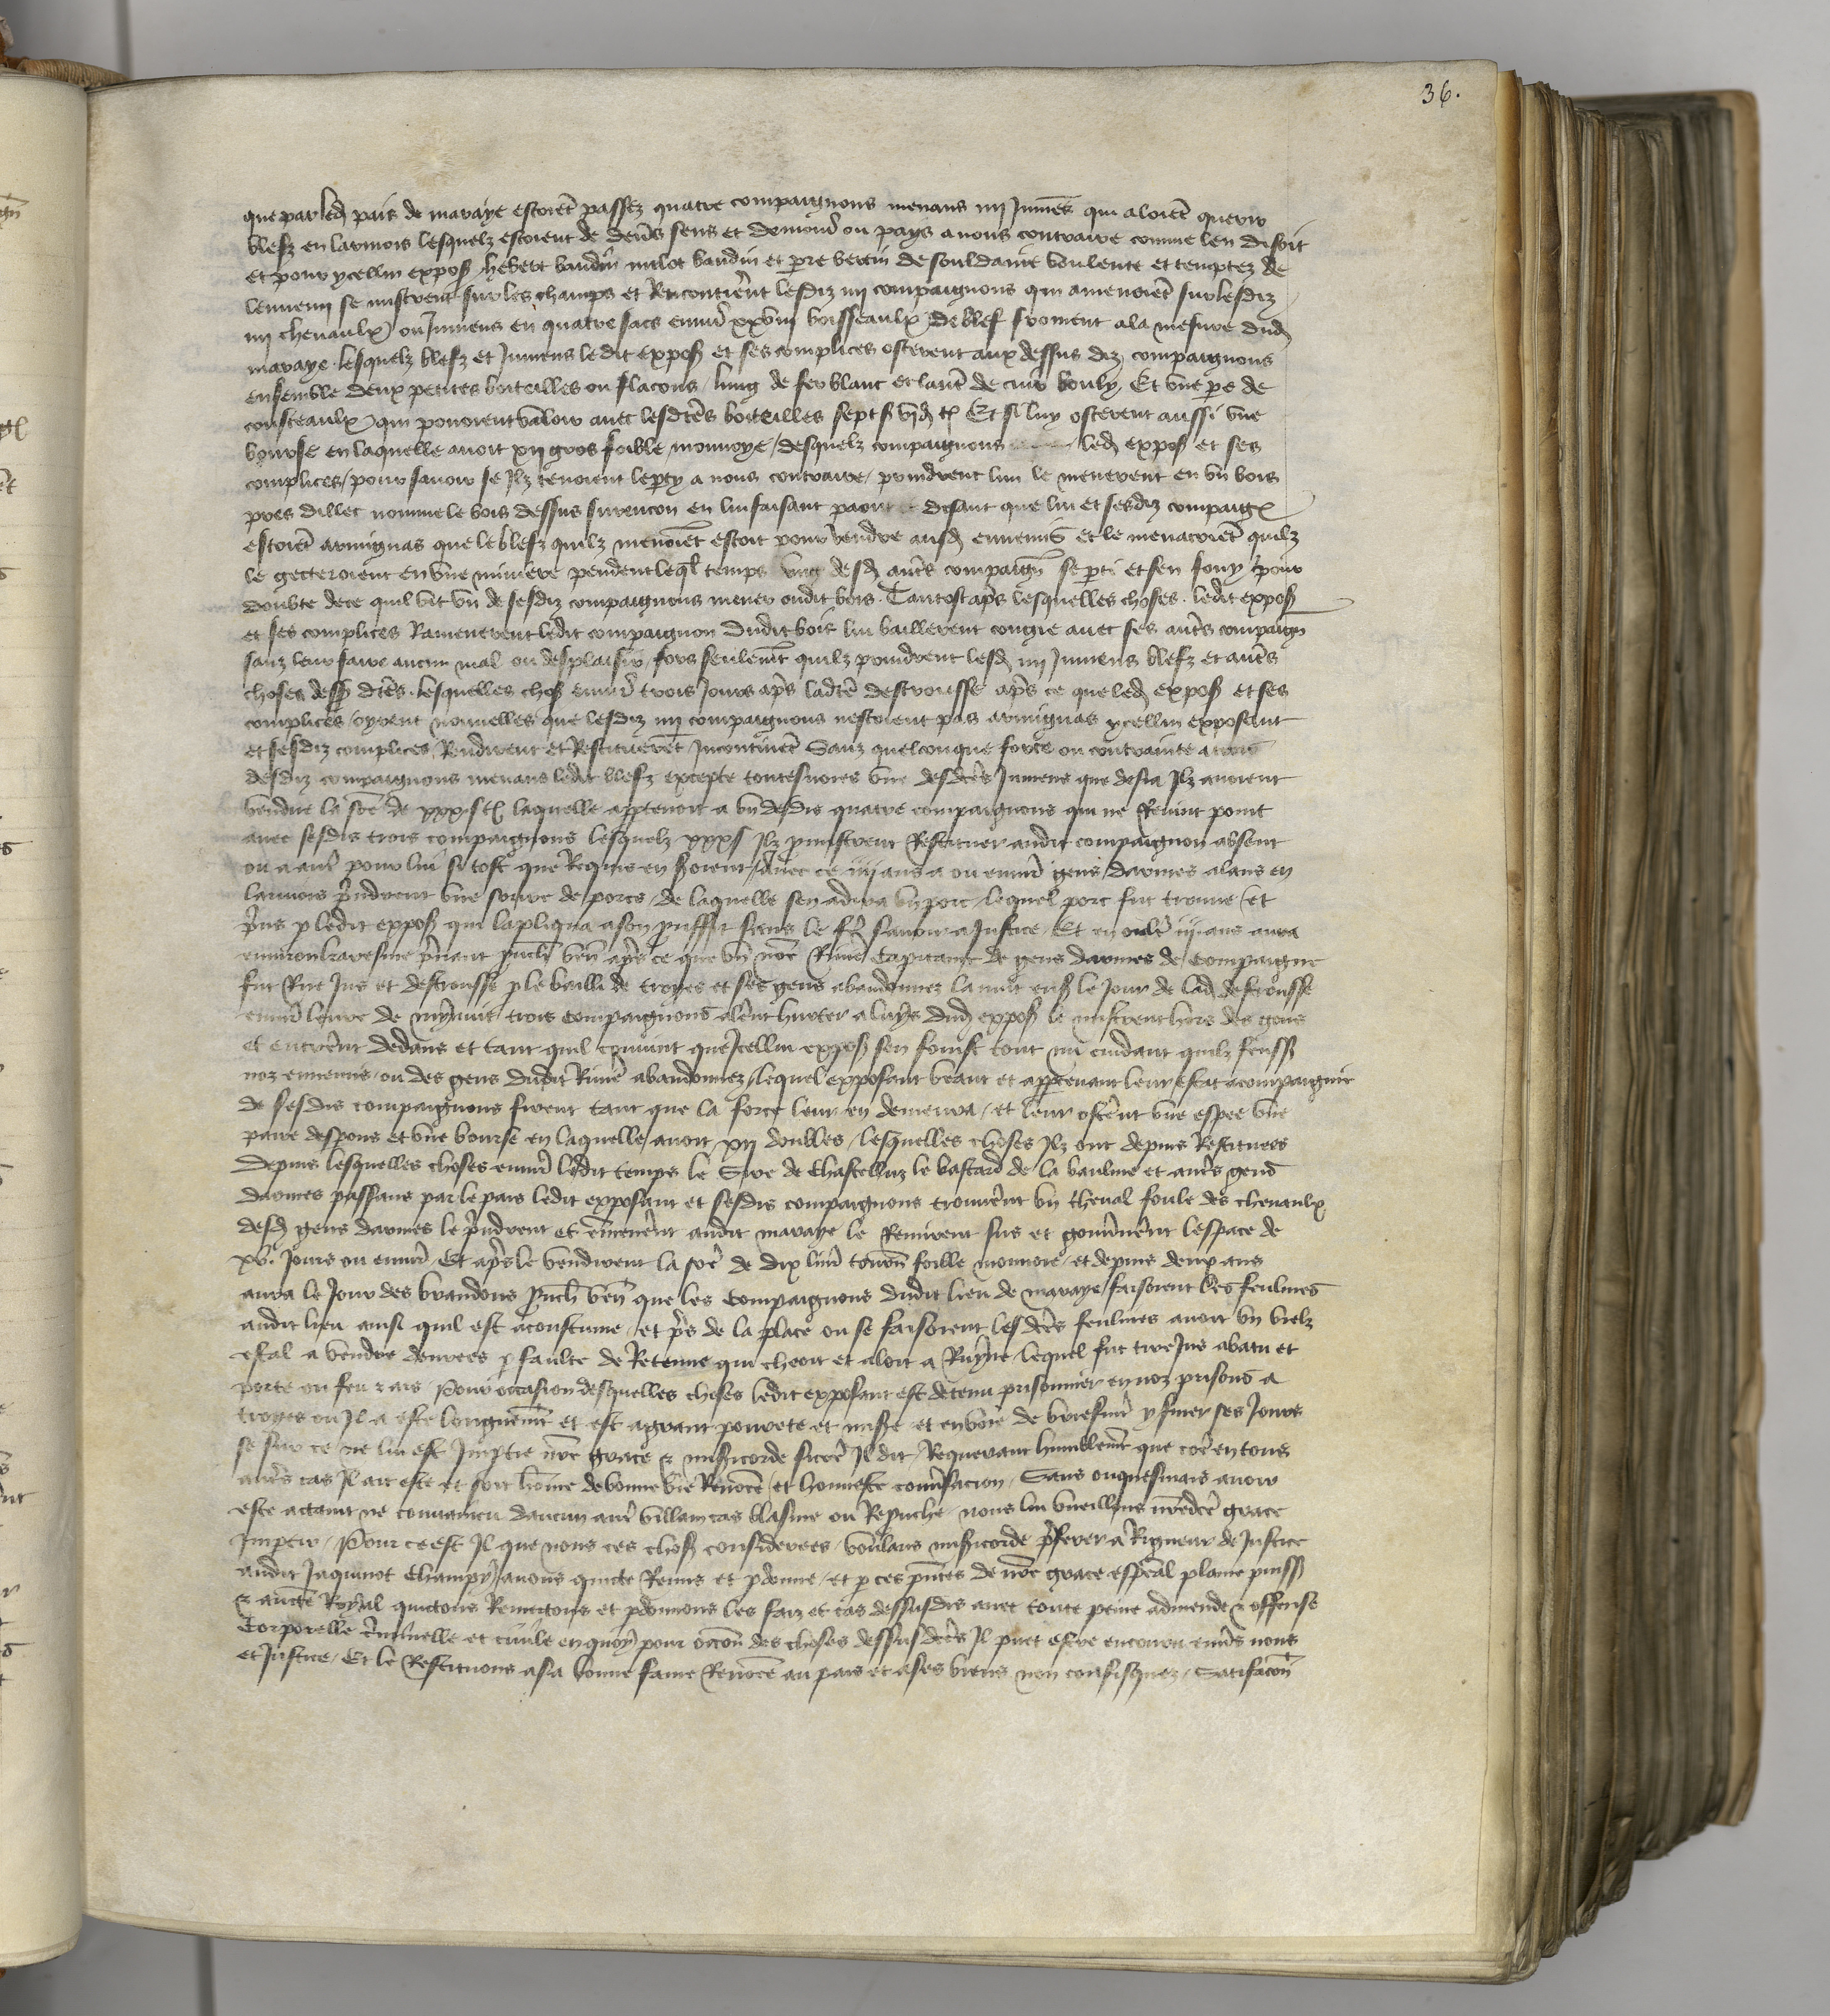 36.
que par led pais de maraye estoiet passez quatre compaignons menans iiij Jumēs qui aloiēt querir
blefz en larmois lesquelz estoient de deuḡs sens et demoure ou pays a nous contraire comme len disoit
et pour ycellui expos hebert baudin milot baudin et pre verrin de souldaine voulente et temptez de
lennemi se mistrent sur les champs et Rencontrerent lesdiz iiij compaignons qui amenoiēt sur lesdiz
iiij cheuaulx ou Jumens en quatre sacs enuir̄ xxviij boisseaulx de blef froment a la mesure dud
maraye lesquelz blefz et Jumens ledit expos et ses complices osterent aux dessus diz compaignons
ensemble deux petites boiteilles ou flacons lung de fer blanc et laut̄e de cuir bouly Et vne pe de
cousteaulx qui pouoient valoir auec lesdctēs boiteilles sept s vj d t Et si luy osterent aussi vne
bourse en laquelle auoit xij gros foible monnoye desquelz compaignons led expos et ses
complices pour sauoir se Ilz tenoient le pty a nous contraire prindrent lun le menerent en vn bois
pres dillec nomme le bois dessus surencon en lui faisant paour et disant que lui et sesdiz compaig
estoiēt armignas que le blefz quilz menoiēt estoit pour vendre ausd ennemis et le menacoiēt quilz
le getteroient en vne miniere pendent leql temps vng desd aut̄es compaign se pti et sen fouy pour
doubte de ce quil vit vn de sesdiz compaignons mener oudit bois. Tantost aps lesquelles choses. ledit expos
et ses complices Ramenerent ledit compaignon dudit bois lui baillerent congie auec ses aut̄s compaign
sanz leur faire aucun mal ou desplaisir fors seulemt quilz prindrent lesd iiij Jumens blefz et aut̄s
choses dess dctēs. lesquelles chos enuir̄ trois Jours aps ladctē destrousse aps ce que led expos et ses
complices oyrent nouuelles que lesdiz iiij compaignons nestoient pas armignas ycellui exposant
et sesdiz complices Rendirent et Restituerēt Incontinēt Sanz quelconque force ou contrainte a trois
desdiz compaignons menans ledit blefz excepte toutesuoies vne desdctēs Jumens que desia Ilz auoient
vendue la soē de xxxj s t laquelle apptenoit a vn desdis quatre compaignons qui ne Reuint point
auec sesdis trois compaignons lesquelz xxxj s Ilz pmistrent Restituer audit compaignon absent
ou a autr̄ pour lui si tost que Requis en soient auec ce iiij ans a ou enuir̄ gens darmes alans en
larmois prindrent vne soiue de porcs de laquelle sen adira vn porc lequel porc fut trouue et
pns p ledit expos qui lapliqua a son pruffit sans le fe sauoir a Justice Et en oultr̄ iij ans aura
enuiron karesme prenant pūch ven apres ce que vn nōe Rine Capitaine de gens darmes de compaigne
fut Rue Jus et destrousse p le bailli de troyes et ses gens abandonnez la nuit ens le Jour de lad destrousse
enuir̄ leure de mynuit trois compaignons alerēt hurter a luys dud expos le mistrent hors des gons
et entrerēt dedans et tant quil conuint que Icellui expos sen fouist tout nu cuidant quilz feuss
noz ennemis ou des gens dudit Rine abandonnez lequel exposant veant et appcenant leur estat acompaignie
de sesdis compaignons firent tant que la force leur en demeura et leur osterēt vne espee vne
paire desprons et vne bourse en laquelle auoit xij doubles lesquelles choses Ilz ont depuis Restituees
Depuis lesquelles choses enuir̄ ledit temps le Sire de Chastelluz le bastard de la baulme et aut̄s gens
darmes passans par le pais ledit exposant et sesdis compaignons trouuerēt vn cheual foule des cheuaulx
desd gens darmes le prindrent et emmenerēt audit maraye le remirent sus et gouuernerēt lespace de
xv. Jours ou enuir̄ Et apres le vendirent la soē de dix liur̄ tourn foible monnoie et depuis deux ans
aura le Jour des brandons pūch ven que les compaignons dudit lieu de maraye faisoient les feulmes
audit lieu ainsi quil est acoustume et pres de la place ou se faisoient lesdctēs feulmes auoit vn vielz
estal a vendre denrees p faulte de Retenue qui cheoit et aloit a Ruyne lequel fut tire Jus abatu et
porte ou feu & ars Pour occasion desquelles choses ledit exposant est detenu prisonnier en noz prisons a
troyes ou Il a este longuemt et est a grant pourete et misē et en voie de briefmt y finer ses Jours
se sur ce ne lui est Imptie nrē grace & misicorde sicoē Il dit Requerant humblemt que coē en tous
aut̄s cas Il ait este et soit home de bonne vie Renoēe et honneste conuersacion Sans onquesmais auoir
este actaint ne conuaincu daucun autr̄ villain cas blasme ou Reprouche nous lui vueillons nrēdctē grace
Imptir Pour ce est Il que nous ces chos considerees voulans misicorde preferer a Rigueur de Justice
audit Jaquinot Champy auons quicte Remis et pdonne et p ces pntes de nrē grace espēal plaine puiss
& auctē Royal quictons Remectons et pdonnons les faiz et cas dessusdis auec toute peine admende & offense
Corporelle criminelle et ciuile en quoy pour occon des choses dessusdctēs Il puet estre encouru enuers nous
et Justice Et le Restituons a sa bonne fame Renoēe au pais et a ses biens non confisquez Satifacon